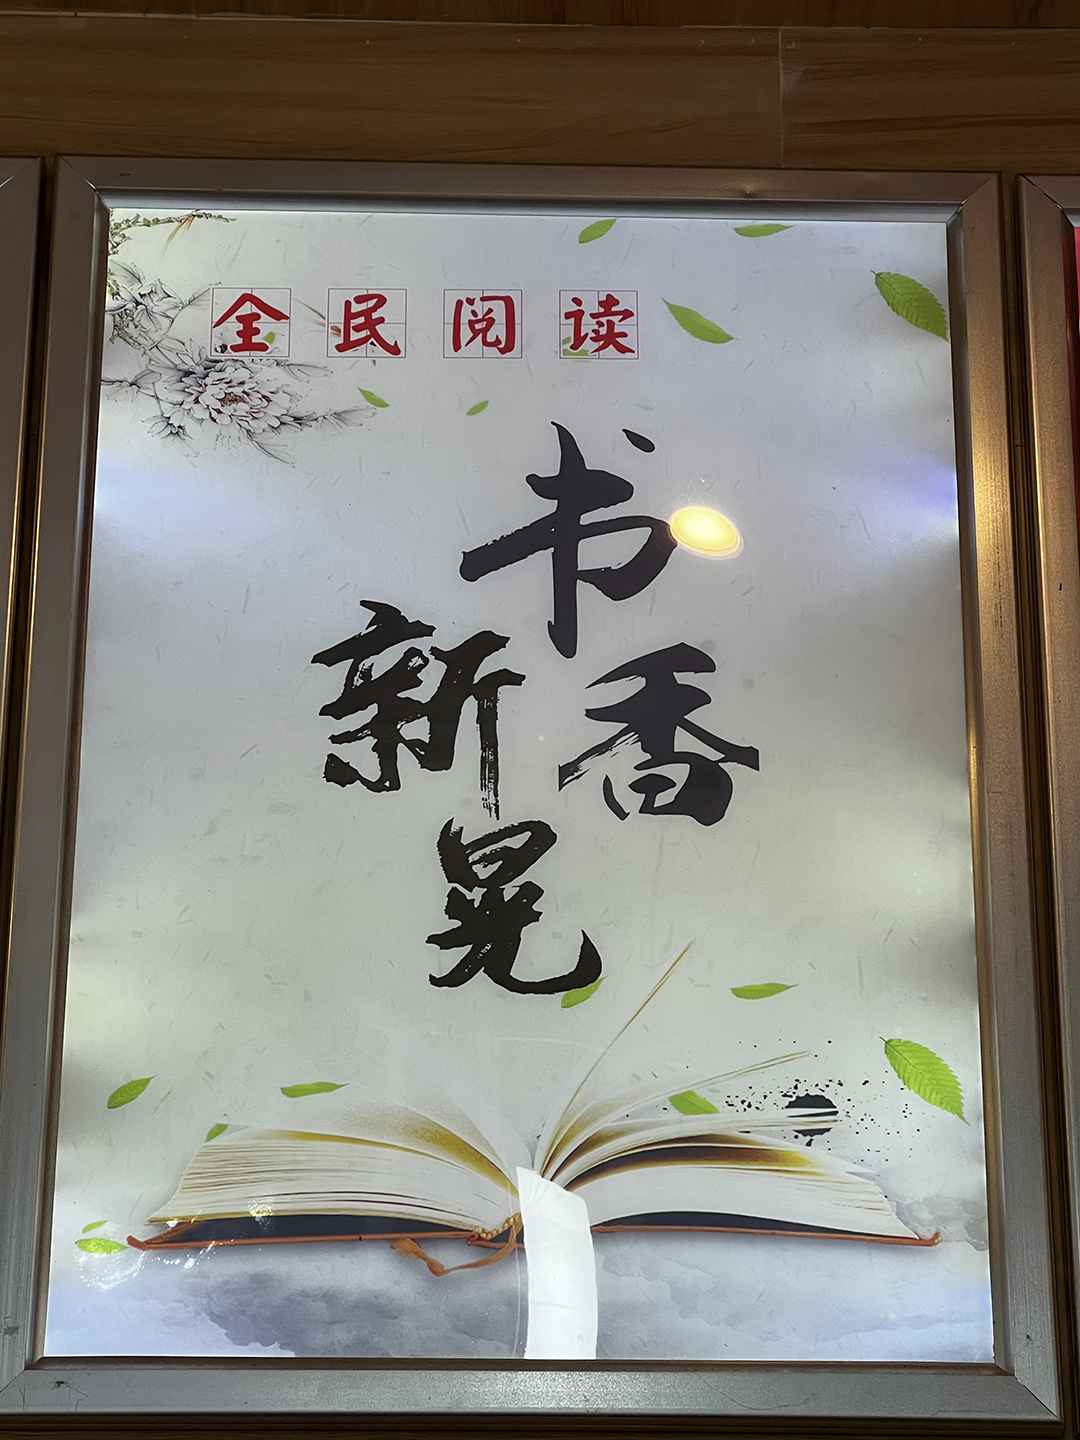 全民阅读
书香
新晃